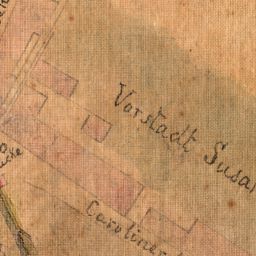 Vorstadt Susa
Caroliner